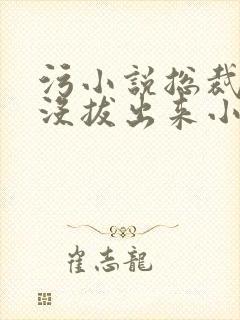 污小说总裁
没拔出来小
崔志龍